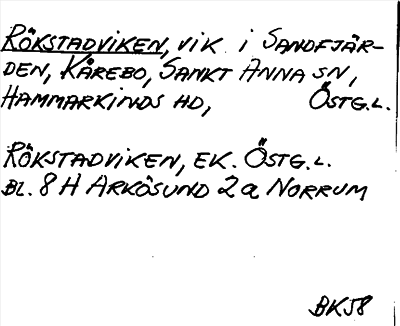 RÖKSTADVIKEN, VIK I SANDFJÄR-
DEN, KÅREBO, SANKT ANNA SN,
HAMMARKINDS HD, ÖSTG.L.
RÖKSTADVIKEN, EK. ÖSTG.L.
BL. 8 H ARKÖSUND 2a NORRUM
BK58